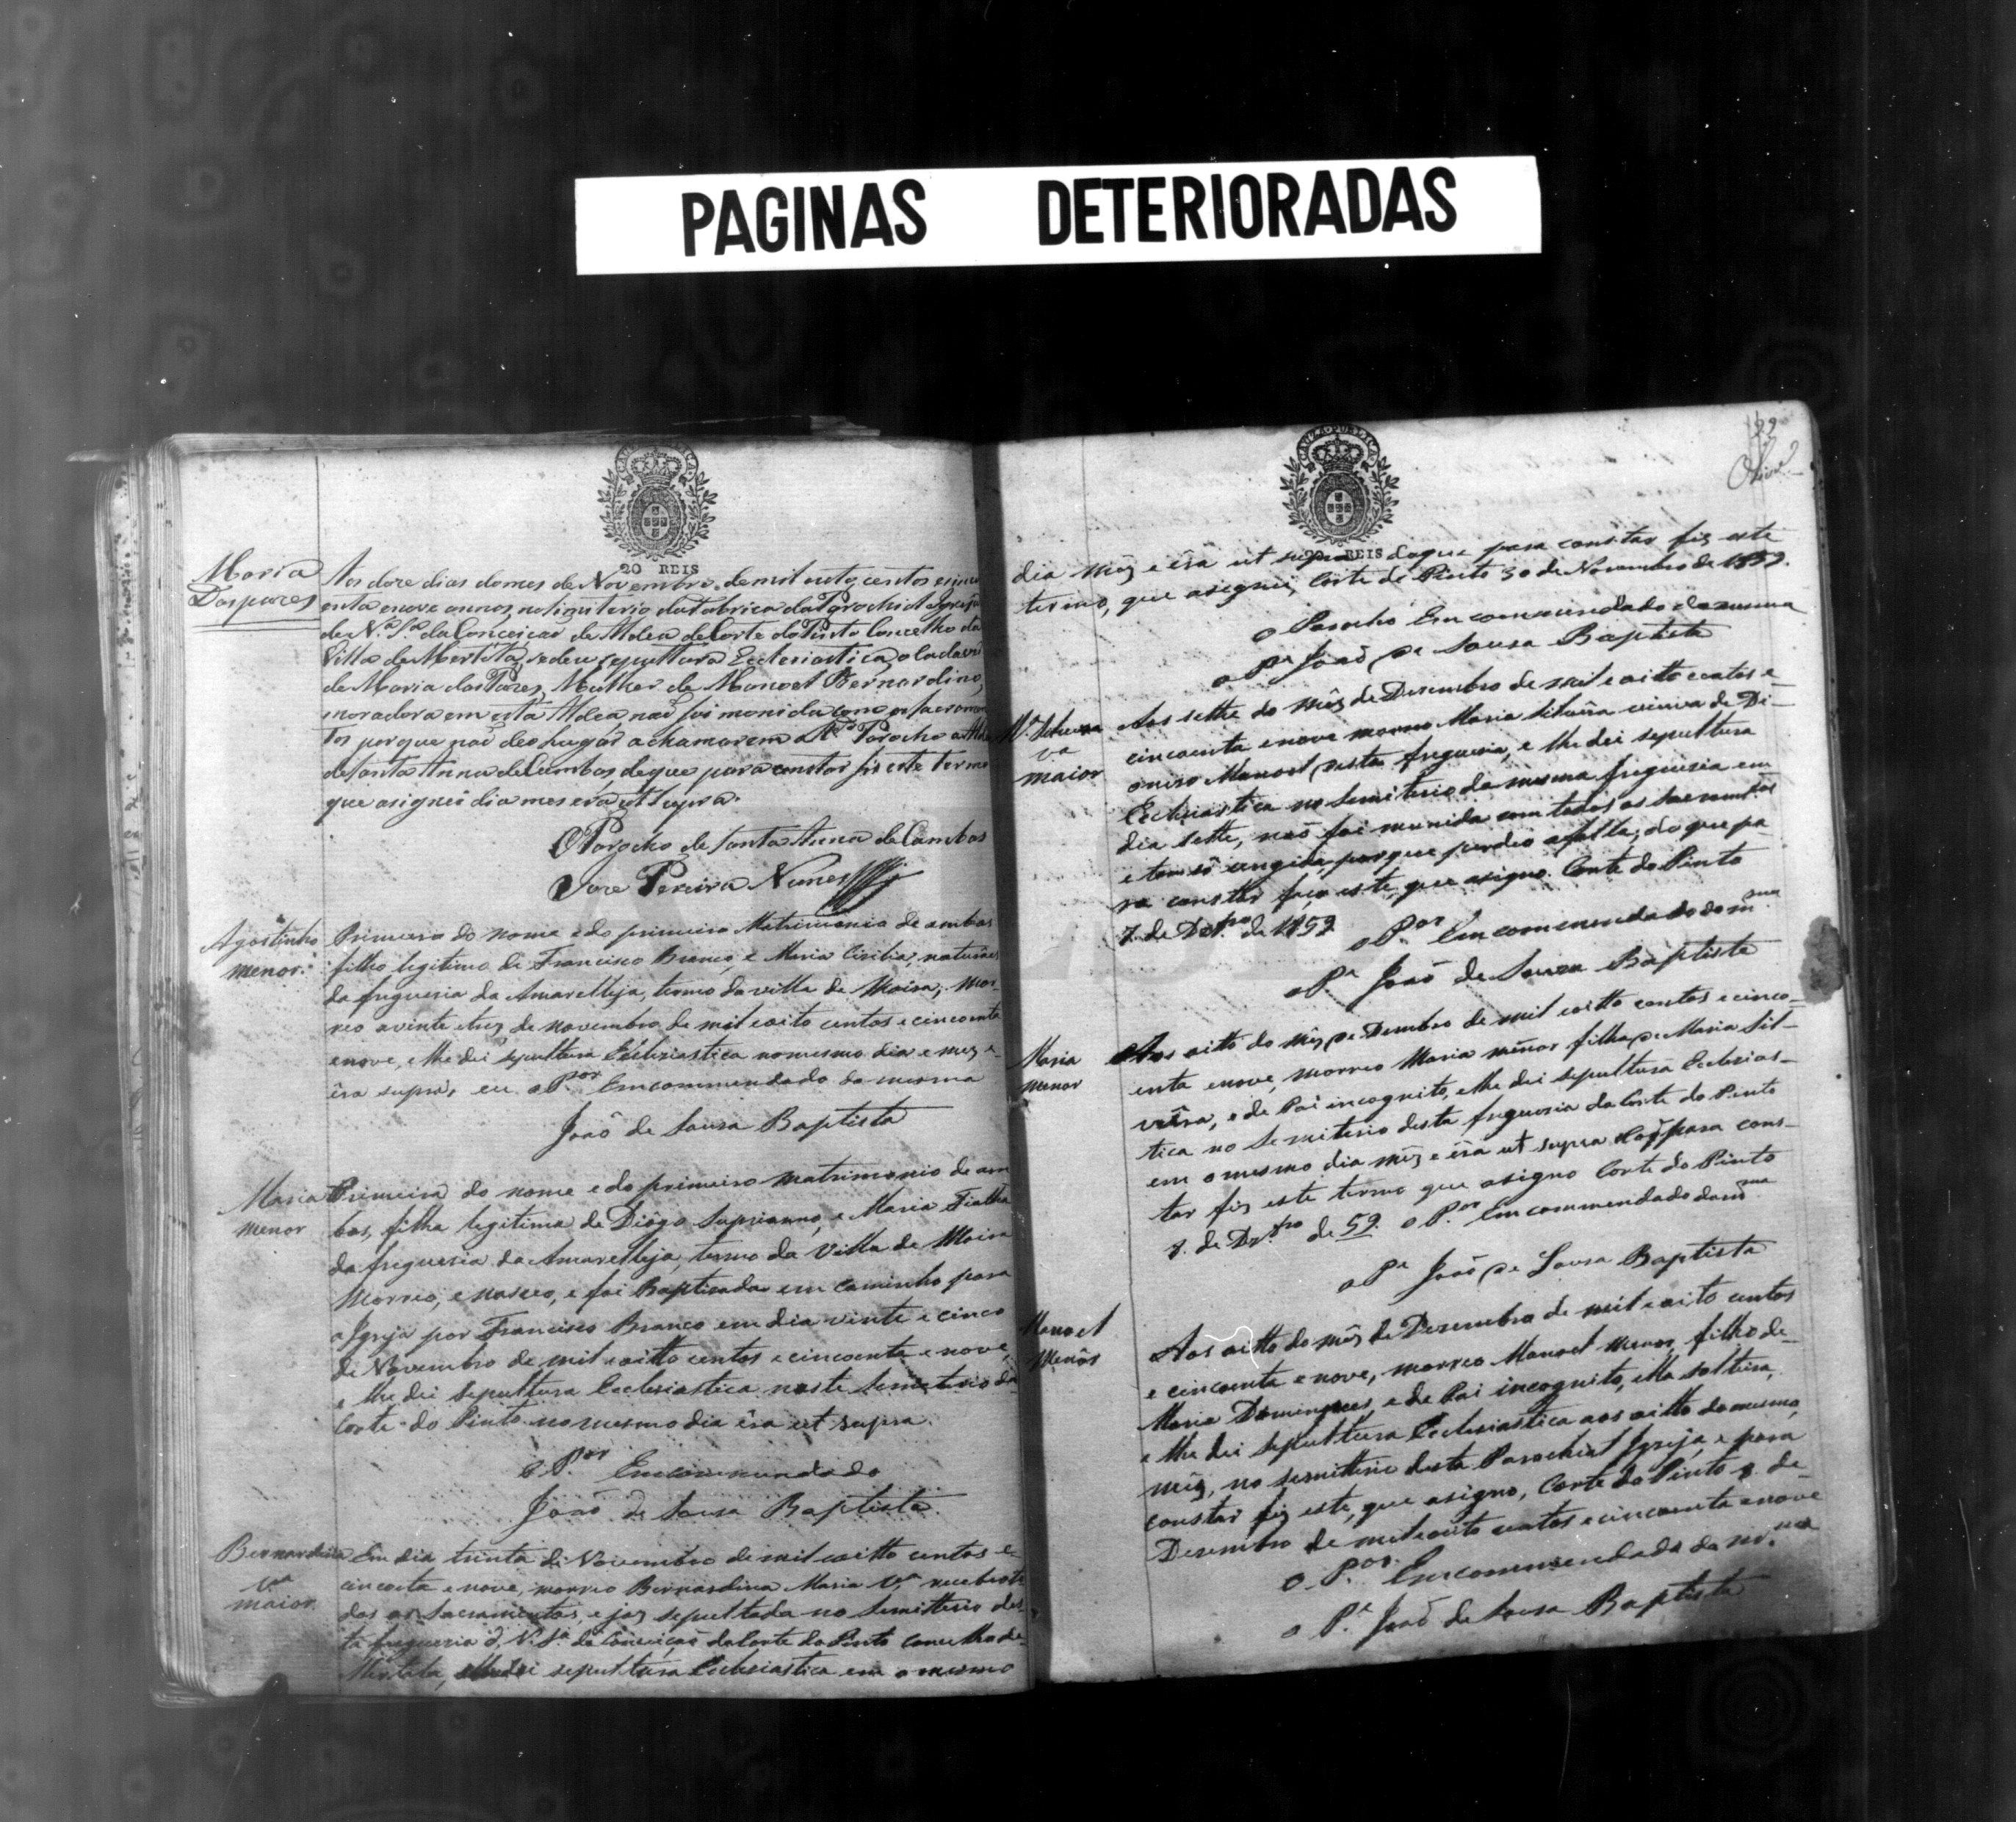 PAGINAS DETERIORADAS
CAUZA PUBLICA
20 REIS
Maria
Dasparес
Aos doze dias do mes de Novembro de mil outo centos e sinco
enta e nove annos, no Simiterio da Fabrica da Parochial Igreja
de N.ª Sr.ª da Conceicaõ de Aldea de Corte do Pinto Concelho da
Villa de Mertola, se deu sepultura Ecclesiastica, o Cadaver
de Maria das Pazes, Mulher de Manoel Bernardino,
moradora em esta Aldea, naõ foi monida com os sacramen
tos porque naõ deo lugar a chamarem o R.do Parocho a Aldea
de Santa Anna de Cambas, de que para constar fis este termo
que asignei dia mes era ut supra.
O Parocho de Santa Anna de Cambas
Joze Pereira Nunes
Agostinho
menor.
Primeiro do nome e do primeiro Matrimonio de ambos
filho legitimo de Francisco Branco, e Maria Cicilia, naturaes
da freguesia da Amarelleja, termo da villa de Moira; mor-
reo a vinte e tres de novembro de mil e oito centos e cincoenta
e nove, e lhe dei sepultura Ecclesiastica no mesmo dia e mez e
êra supra, eu o P.or Emcommendado da mesma
Joaõ de Sousa Baptista
Maria
menor
Primeira do nome e do primeiro matrimonio de am
bos, filha legitima de Diôgo Suprianno, e Maria Fialha
da freguesia da Amarelleja, termo da Villa de Moira
Morreo, e nasceo, e foi Baptisada em caminho para
a Igreja por Francisco Branco em dia vinte e cinco
de Novembro de mil e oitto centos e cincoenta e nove,
e lhe dei Sepultura Ecclesiastica neste Semiterio da
Corte do Pinto no mesmo dia êra ut supra.
o P.or Encommendado
Joaõ de Sousa Baptista
Bernardina
V.ª
maior.
Em dia trinta de Novembro de mil e oitto centos e
cincoenta e nove, morreo Bernardina Maria V.ª recebeo to
dos os Sacramentos, e jaz sepultada no Semitterio des
ta freguesia d. N. Sr.ª da Conceiçaõ da Corte do Pinto Concelho de
Mertola, e lhe dei sepultura Ecclesiastica em o mesmo
CAUZA PUBLICA
20 REIS
dia mêz e êra ut supra do que para constar fiz este
termo, que asignei, Corte do Pinto 30 de Novembro de 1859.
o Parocho Emcommendado da mesma
o P.e Joaõ de Sousa Baptista
M.ª
v.ª
maior
Aos sette do mêz de Desembro de mil e oitto centos e
cincoenta e nove morreo Maria viuva de Di-
oniso Manoel desta freguesia, e lhe dei sepultura
Ecclesiastica no Semiterio da mesma freguesia em
dia sette, naõ foi munida com todos os Sacramentos
e tam só ungida, porque perdeo a falla; do que pa-
ra constar faço este, que asigno. Corte do Pinto
7. de Dez.bro de 1859
o P.or Emcommendado da m.ma
o P.e Joaõ de Sousa Baptista
Maria
menor
Aos oitto do mêz de Desembro de mil e oitto centos e cinco-
enta e nove, morreo Maria menor filha de Maria Sil-
veira, e de Pai incognito, e lhe dei sepultura Ecclesias-
tica no Semiterio desta freguesia da Corte do Pinto
em o mesmo dia mêz e êra ut supra do q para cons-
tar fiz este termo que asigno Corte do Pinto
8. de Dz.bro de 59. o P.or Emcommendado da m.ma
o P.e Joaõ de Sousa Baptista
Manoel
Menôr
Aos oitto do mêz de Desembro de mil e oito centos
e cincoenta e nove, morreo Manoel menor, filho de
Maria Domingues, e de Pai incognito, ella solteira,
e lhe dei sepultura Ecclesiastica aos oitto do mesmo,
mêz, no semitterio desta Parochial Igreja, e para
constar fiz este, que asigno, Corte do Pinto 8. de
Desembro de mil e oito centos e cincoenta e nove
o P.or Emcommendado da m.ma
o P.e Joaõ de Sousa Baptista